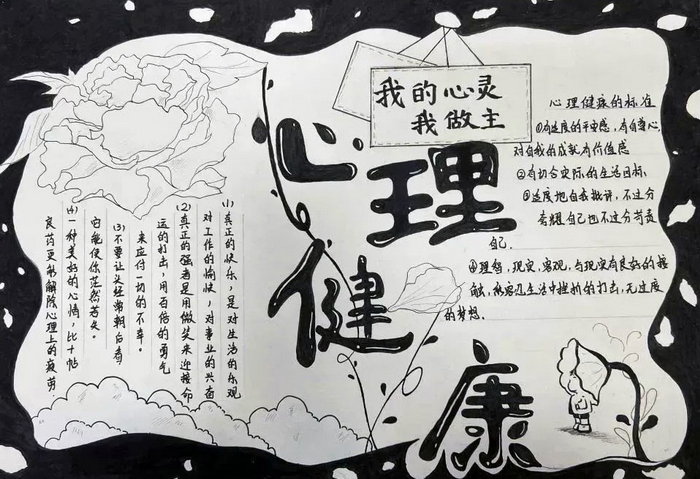 我的心灵
我做主
心理健康
心理健康的标准
①有适度的平安感，有自尊心，
对自我的成就有价值感
②有切合实际的生活目标
③适度地自我批评，不过分
夸耀自己也不过分苛责
自己。
④理智，现实，客观，与现实有良好的接
触，能容忍生活中挫折的打击，无过度
的梦想。
(1)真正的快乐，是对生活的乐观
对工作的愉快，对事业的兴奋
(2)真正的强者是用微笑来迎接命
运的打击，用百倍的勇气
来应付一切的不幸。
(3)不要让头经常朝后看，
它能使你茫然若失。
(4)一种美好的心情，比十帖
良药更能解除心理上的疲惫